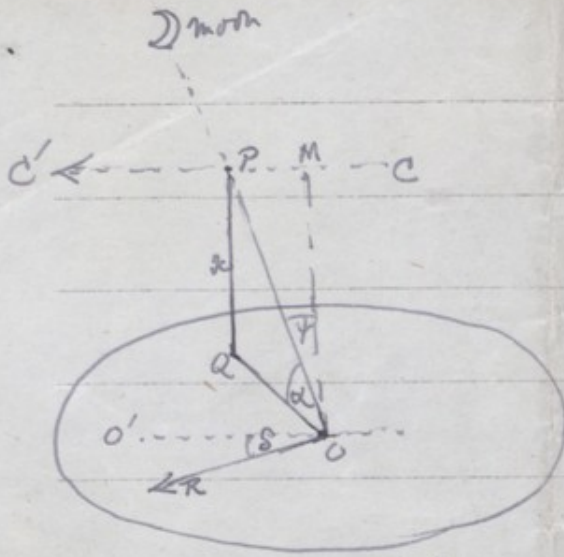 moon
C' P M C
x
ψ
Q α
O' S O
R